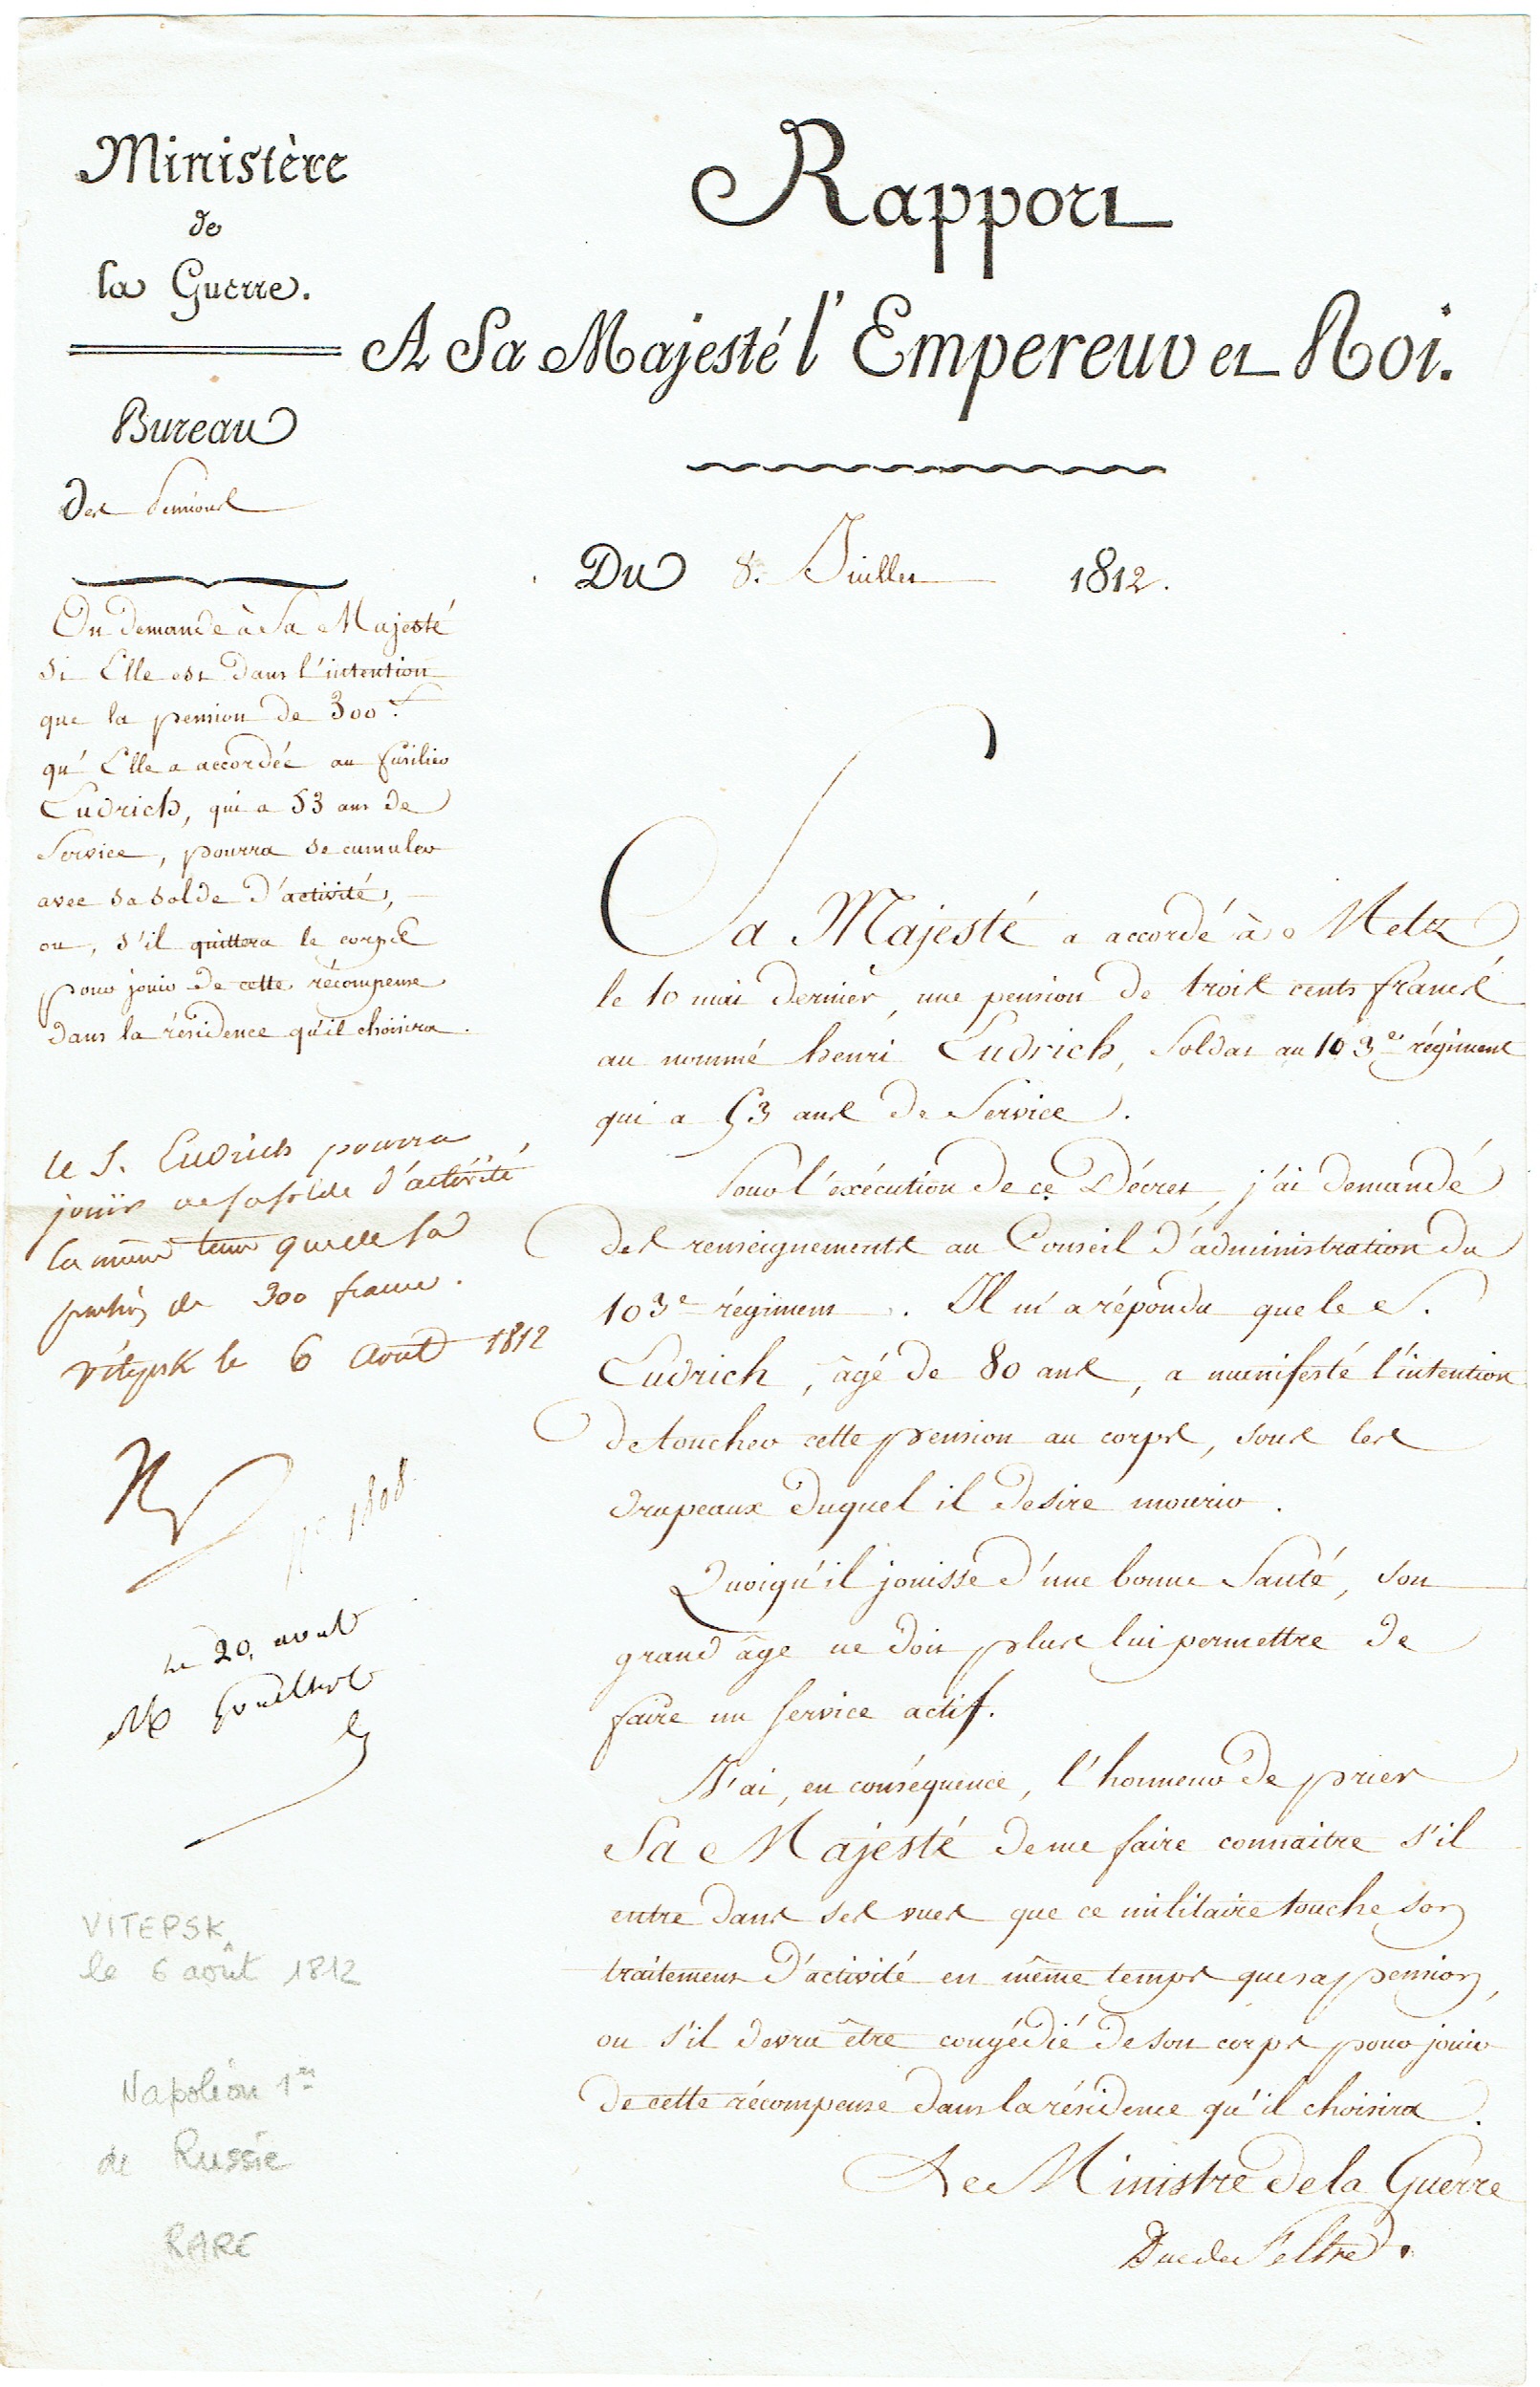 Ministère
de
la Guerre.
Bureau
des Pensions
Rapport
A Sa Majesté l'Empereur et Roi.
Du 8. Juillet 1812.
On demande à Sa Majesté
si Elle est dans l'intention
que la pension de 300 f.
qu'Elle a accordée au fusilier
Eudrich, qui a 53 ans de
Service, pourra se cumuler
avec sa solde d'activité,
ou, s'il quittera le corps
pour jouir de cette récompense
dans la résidence qu'il choisira.
le S. Eudrich pourra
jouir de sa solde d'activité
la même tems que de sa
pension de 300 francs.
Vitepsk le 6 Août 1812
N
n° 1808
le 20 aout
M
VITEPSK
le 6 août 1812
Napoléon 1er
de Russie
RARE
Sa Majesté a accordé à Metz
le 10 mai dernier, une pension de trois cents francs
au nommé henri Eudrich, Soldat au 103e régiment
qui a 53 ans de Service.
Pour l'exécution de ce Décret, j'ai demandé
des renseignements au Conseil d'administration du
103e régiment. Il m'a répondu que le S.
Eudrich, âgé de 80 ans, a manifesté l'intention
de toucher cette pension au corps, sous les
drapeaux duquel il desire mourir.
Quoiqu'il jouisse d'une bonne Santé, son
grand âge ne doit plus lui permettre de
faire un service actif.
J'ai, en conséquence, l'honneur de prier
Sa Majesté de me faire connaitre s'il
entre dans ses vues que ce militaire touche son
traitement d'activité en même temps que sa pension,
ou s'il devra être congédié de son corps pour jouir
de cette récompense dans la résidence qu'il choisira.
Le Ministre de la Guerre
Duc de Feltre.